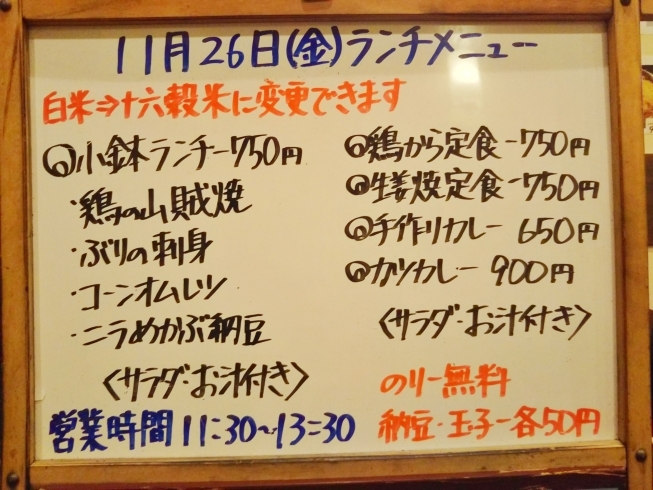 11月26日(金)ランチメニュー
白米⇒十六穀米に変更できます
◎小鉢ランチー750円
・鶏の山賊焼
・ぶりの刺身
・コーンオムレツ
・ニラめかぶ納豆
〈サラダ・お汁付き〉
◎鶏から定食ー750円
◎生姜焼定食ー750円
◎手作りカレー 650円
◎カツカレー 900円
〈サラダ・お汁付き〉
のりー無料
納豆・玉子ー各50円
営業時間 11:30〜13:30